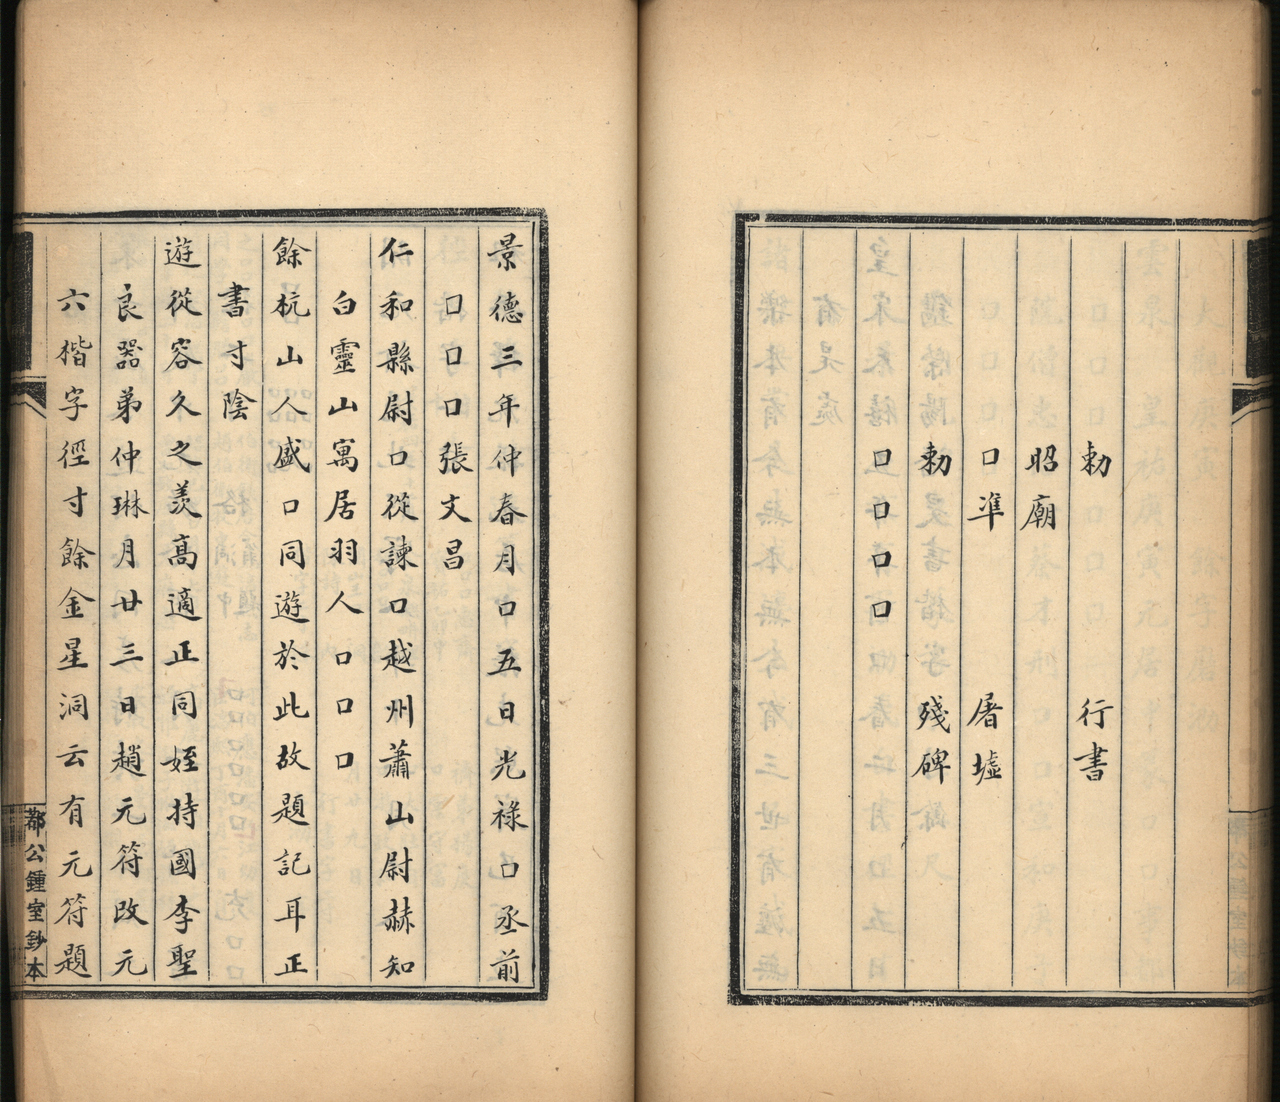 敕　行書
昭廟
口準　屠墟
敕　殘碑
口口口口
景德三年仲春月口五日光祿口丞前
口口口張文昌
仁和縣尉口從諫口越州蕭山尉赫知
白靈山寓居羽人口口口
餘杭山人盛口同遊於此故題記耳正
書寸陰
遊從容久之羨高適正同姪持國李聖
良器弟仲琳月廿三日趙元符改元
六楷字徑寸餘金星洞云有元符題
鄀公鍾室鈔本